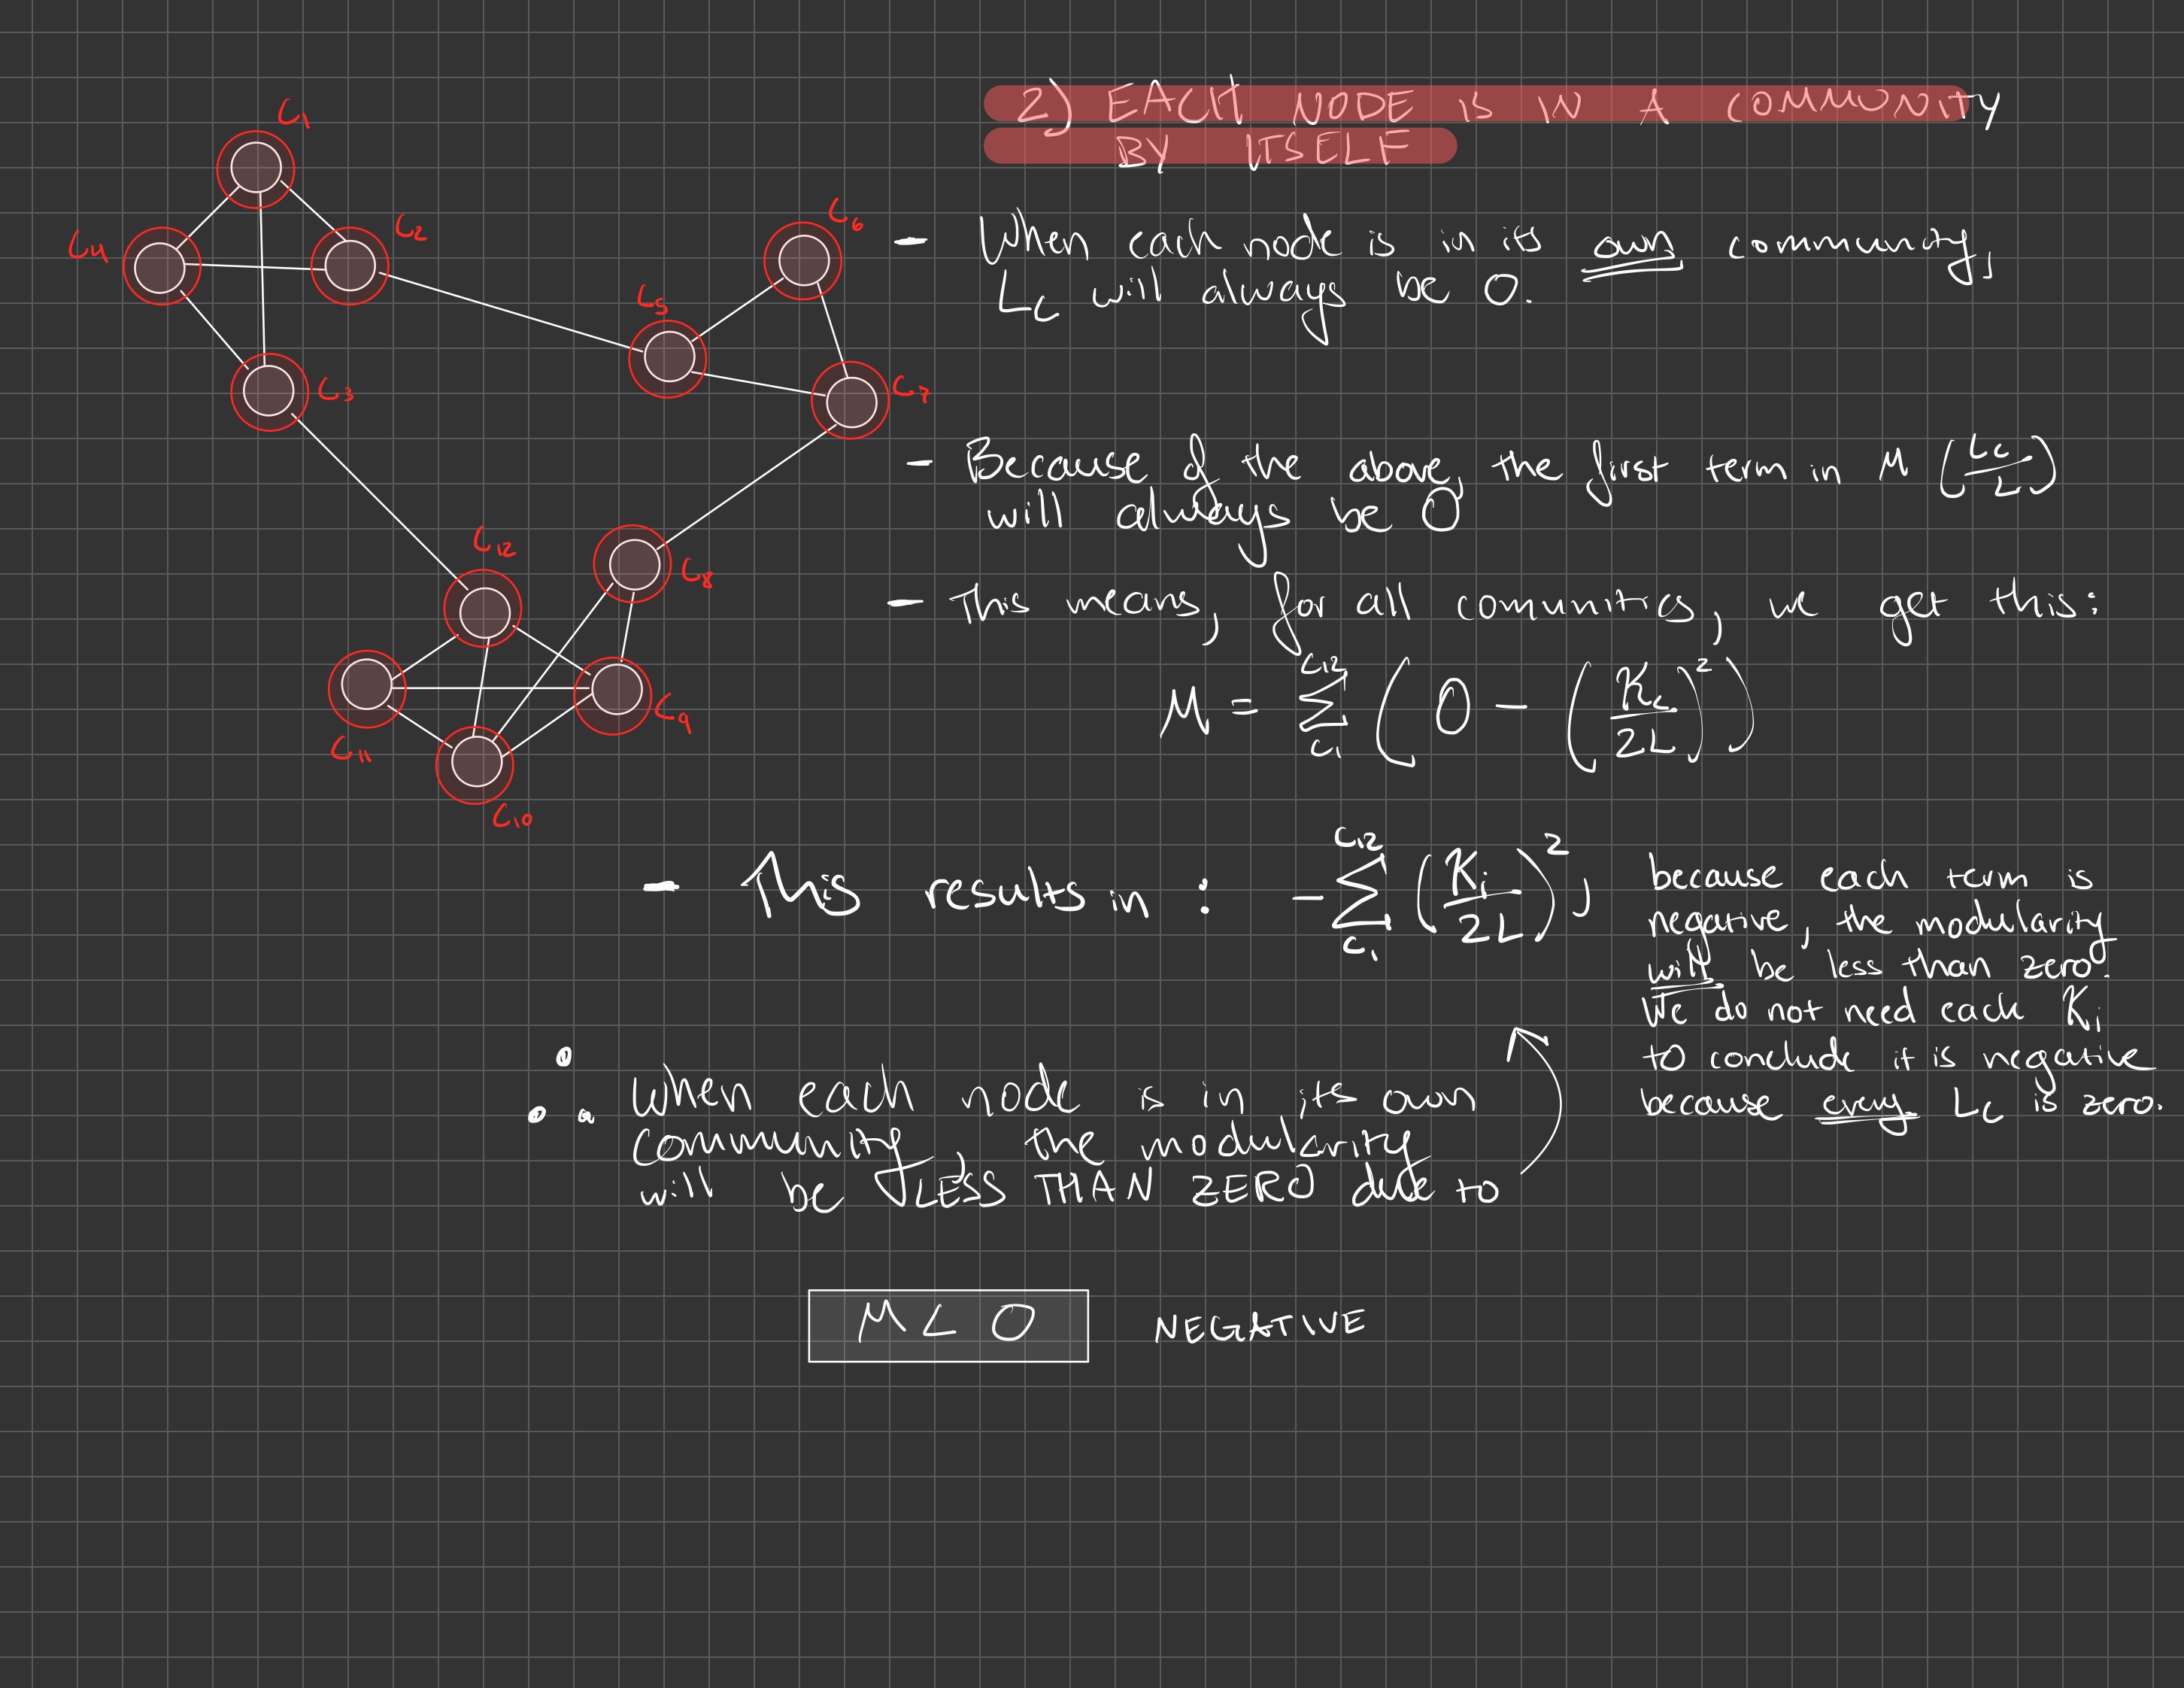 2) EACH NODE IS IN A COMMUNITY
BY ITSELF
C1
C2
C3
C4
C5
C6
C7
C8
C9
C10
C11
C12
- When each node is in its own community,
Lc will always be 0.
- Because of the above, the first term in M (Lc/L)
will always be 0
- This means, for all communities, we get this:
M = Σ_{C1}^{C12} (0 - (Kc/2L)²)
- This results in : -Σ_{C1}^{C12} (Ki/2L)²,
because each term is
negative, the modularity
will be less than zero.
We do not need each Ki
to conclude it is negative
because every Lc is zero.
∴ When each node is in its own
community, the modularity
will be LESS THAN ZERO due to
M < 0 NEGATIVE